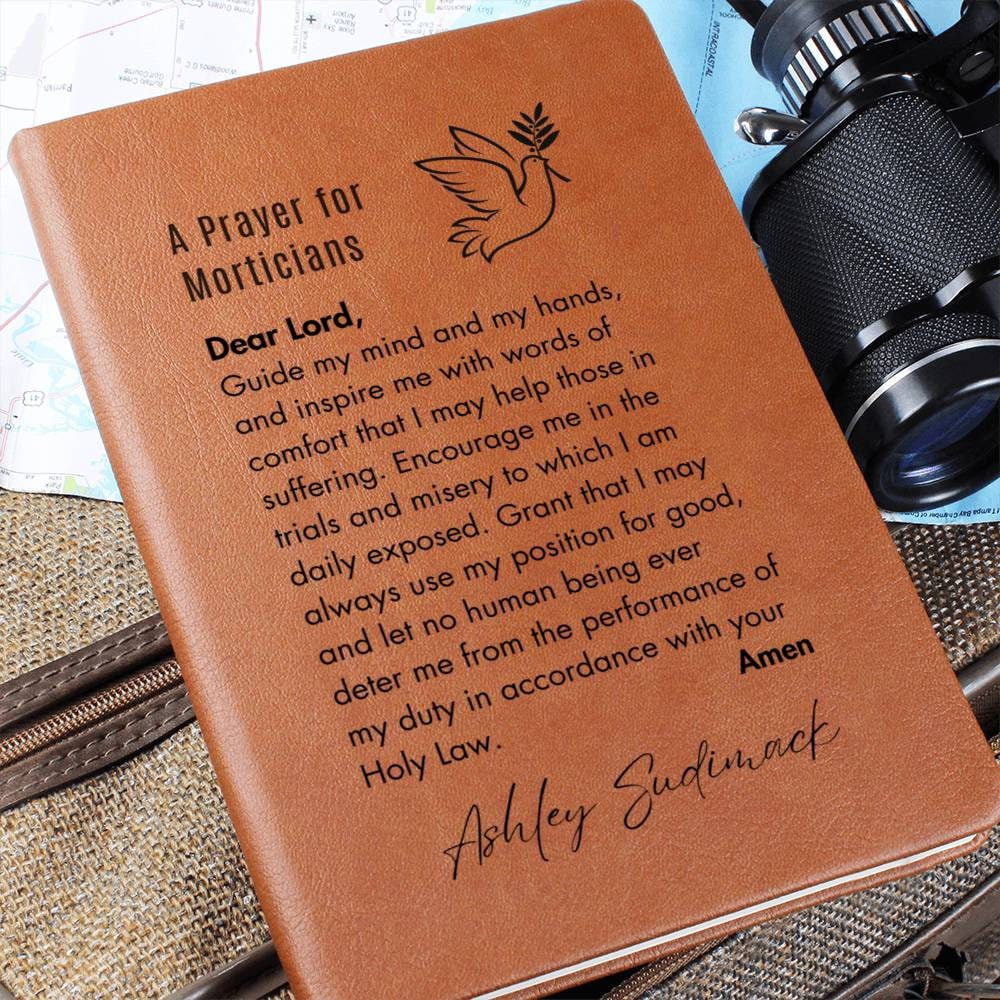 A Prayer for
Morticians
Dear Lord,
Guide my mind and my hands,
and inspire me with words of
comfort that I may help those in
suffering. Encourage me in the
trials and misery to which I am
daily exposed. Grant that I may
always use my position for good,
and let no human being ever
deter me from the performance of
my duty in accordance with your
Holy Law.
Amen
Ashley Sudimack
Parrish
Buffalo Creek
Golf Course
Woodlands G C
Airport
Dixie Sky
Ranch
41
INTRACOASTAL
41
Park